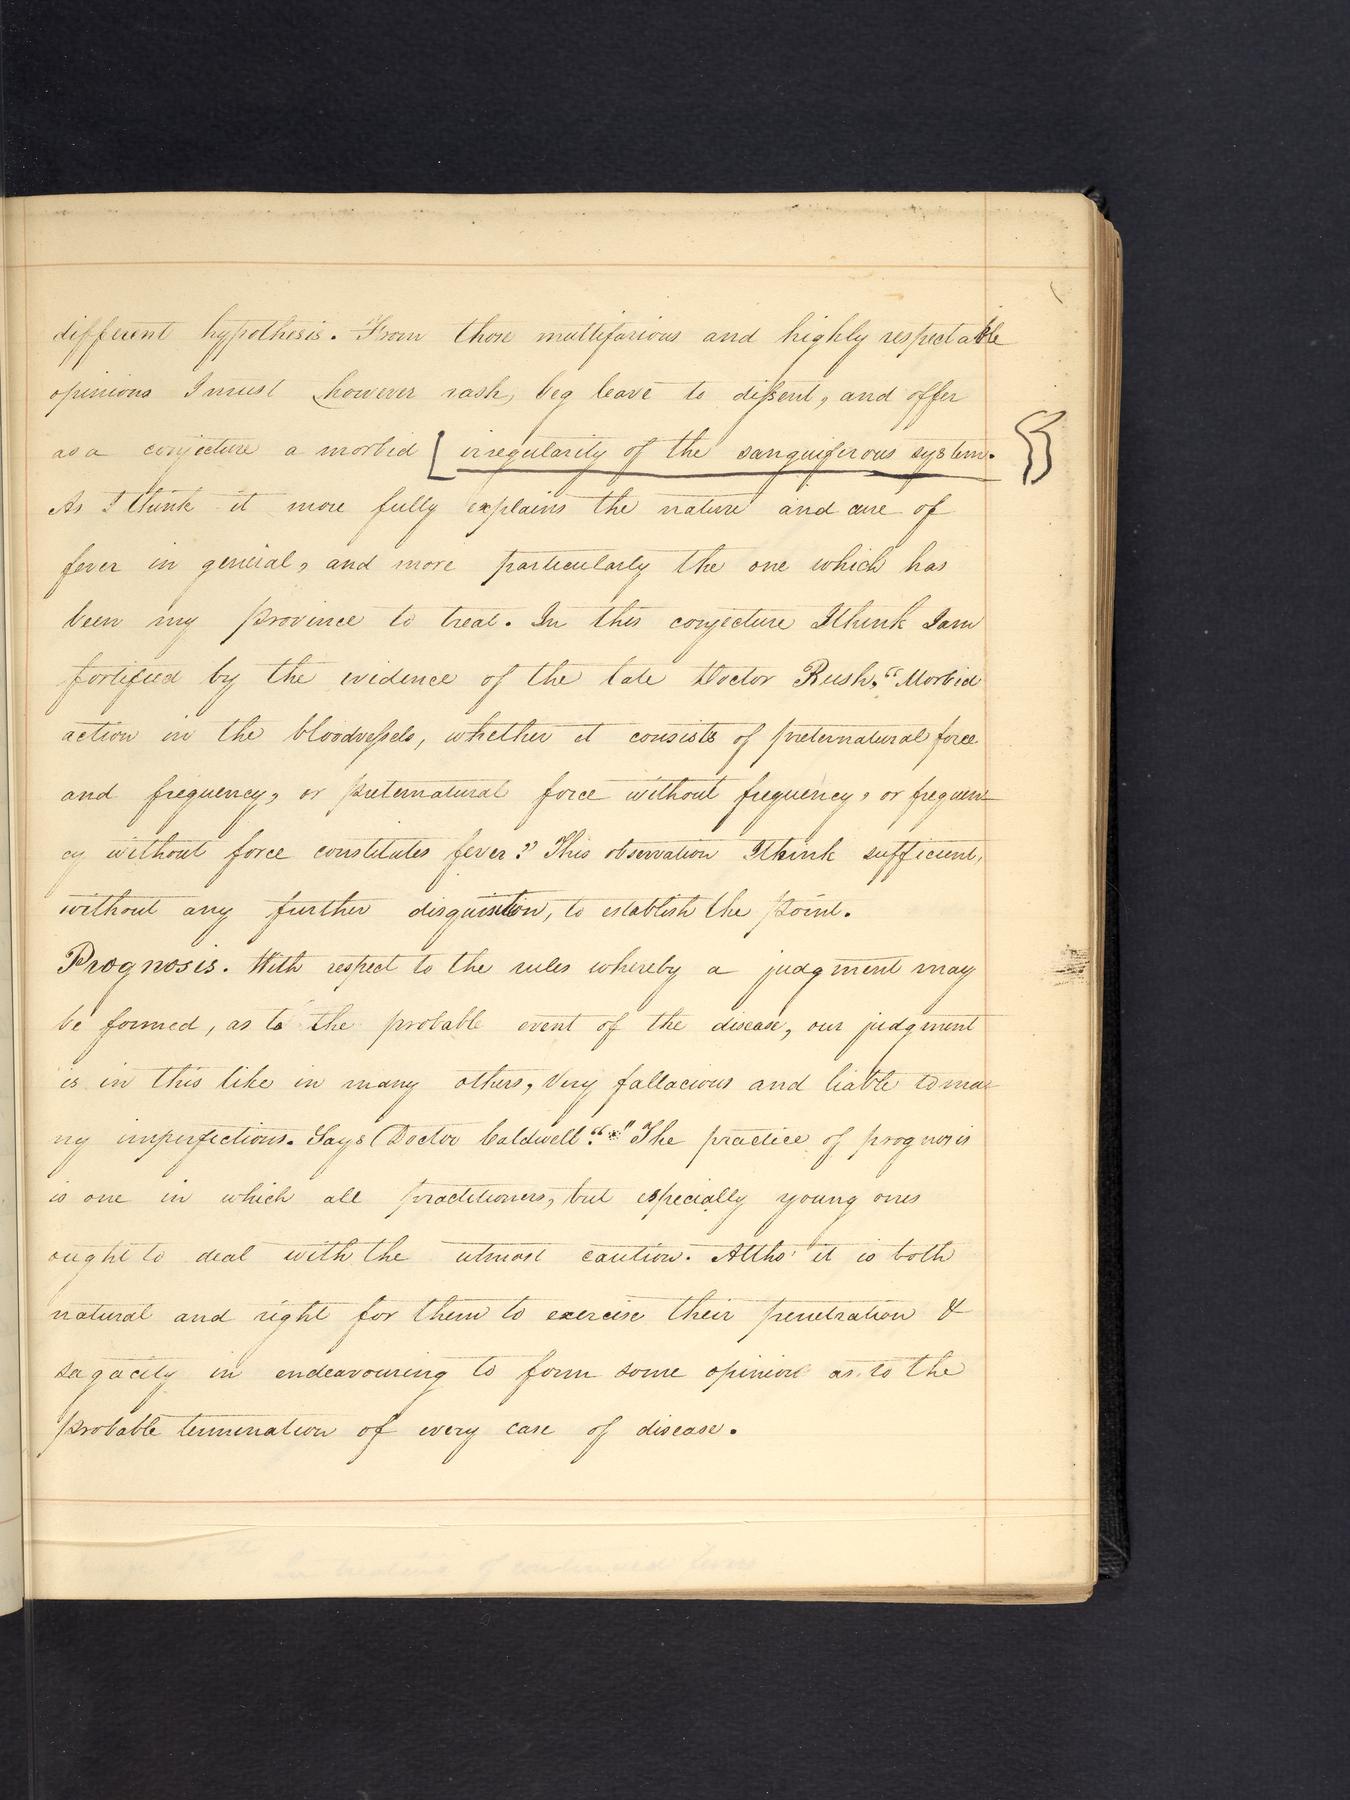 different hypothesis. From those multifarious and highly respectable
opinions I must (however rash, beg leave to dissent, and offer
as a conjecture a morbid [irregularity of the sanguiferous system.
As I think it more fully explains the nature and cure of
fever in general, and more particularly the one which has
been my province to treat. In this conjecture I think I am
fortified by the evidence of the late Doctor Rush. "Morbid
action in the bloodvessels, whether it consists of preternatural force
and frequency, or preternatural force without frequency, or frequen-
cy without force constitutes fever?" This observation I think sufficient,
without any further disquisition, to establish the point.
Prognosis. With respect to the rules whereby a judgment may
be formed, as to the probable event of the disease, our judgment
is in this like in many others, very fallacious and liable to ma-
ny imperfections. Says Doctor Caldwell "*" The practice of prognosis
is one in which all practitioners, but especially young ones
ought to deal with the utmost caution. Altho' it is both
natural and right for them to exercise their penetration &
sagacity in endeavouring to form some opinion as to the
probable termination of every case of disease.